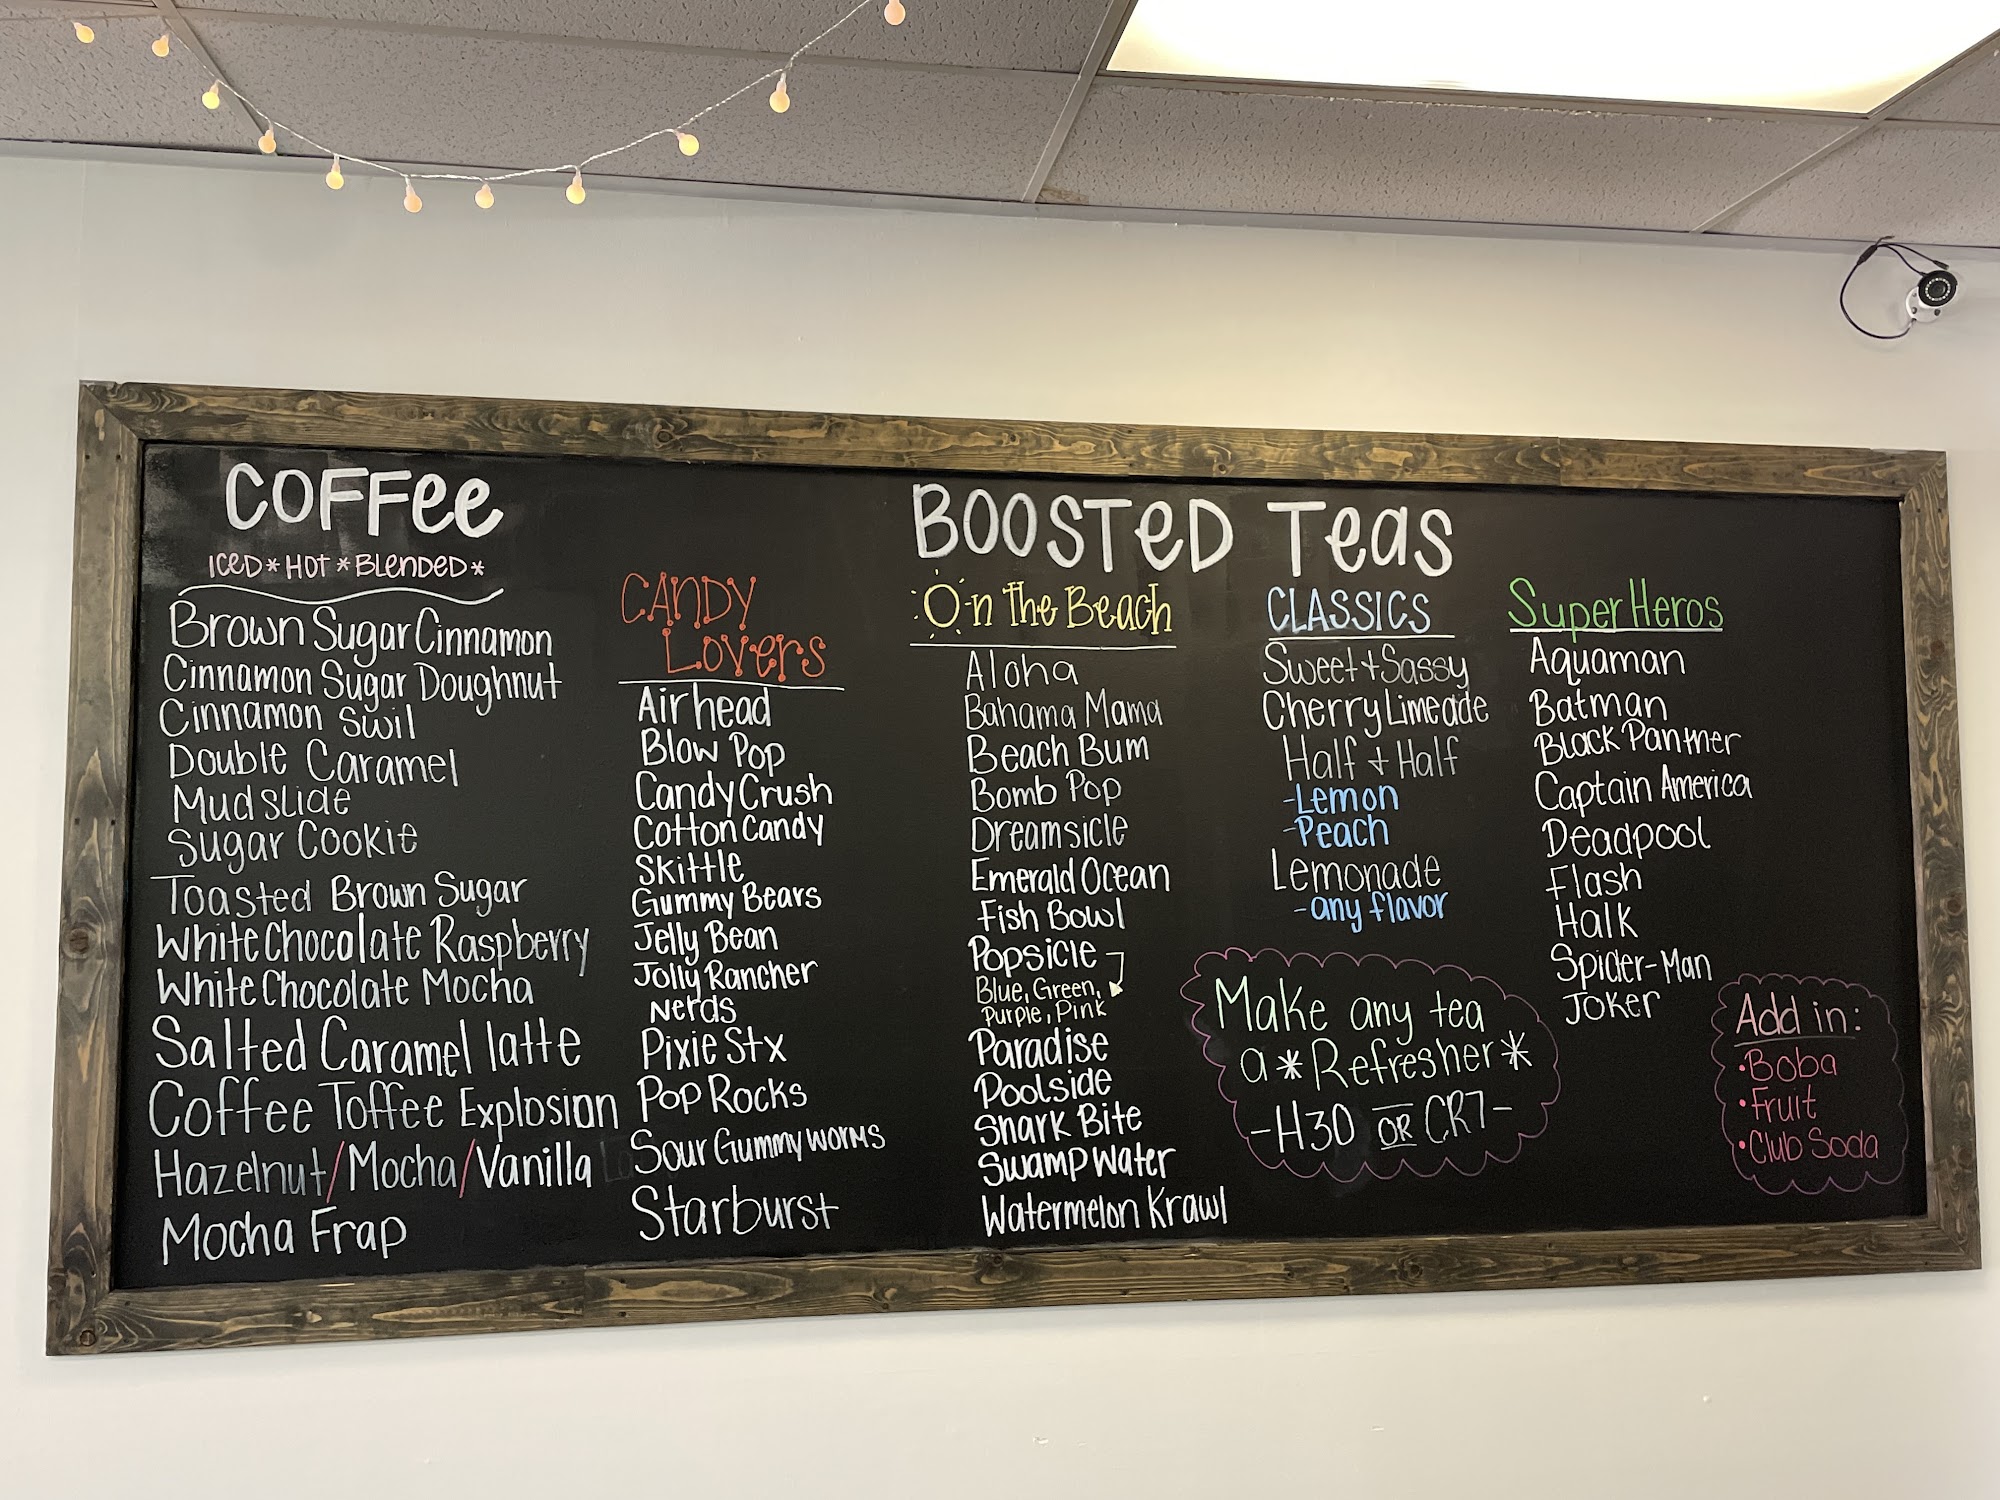 COFFee
ICED * HOT * BLENDED *
Brown Sugar Cinnamon
Cinnamon Sugar Doughnut
Cinnamon Swil
Double Caramel
Mudslide
Sugar Cookie
Toasted Brown Sugar
White Chocolate Raspberry
White Chocolate Mocha
Salted Caramel latte
Coffee Toffee Explosion
Hazelnut/Mocha/Vanilla
Mocha Frap
BOOSTeD Teas
CANDY
Lovers
Airhead
Blow Pop
Candy Crush
Cotton Candy
Skittle
Gummy Bears
Jelly Bean
Jolly Rancher
Nerds
Pixie Stx
Pop Rocks
Sour Gummy worms
Starburst
On the Beach
Aloha
Bahama Mama
Beach Bum
Bomb Pop
Dreamsicle
Emerald Ocean
Fish Bowl
Popsicle
Blue, Green,
Purple, Pink
Paradise
Poolside
Shark Bite
Swamp Water
Watermelon Krawl
CLASSICS
Sweet + Sassy
Cherry Limeade
Half + Half
-Lemon
-Peach
Lemonade
-any flavor
Make any tea
a *Refresher*
-H30 OR CR7-
Super Heros
Aquaman
Batman
Black Panther
Captain America
Deadpool
Flash
Halk
Spider-Man
Joker
Add in:
•Boba
•Fruit
•Club Soda